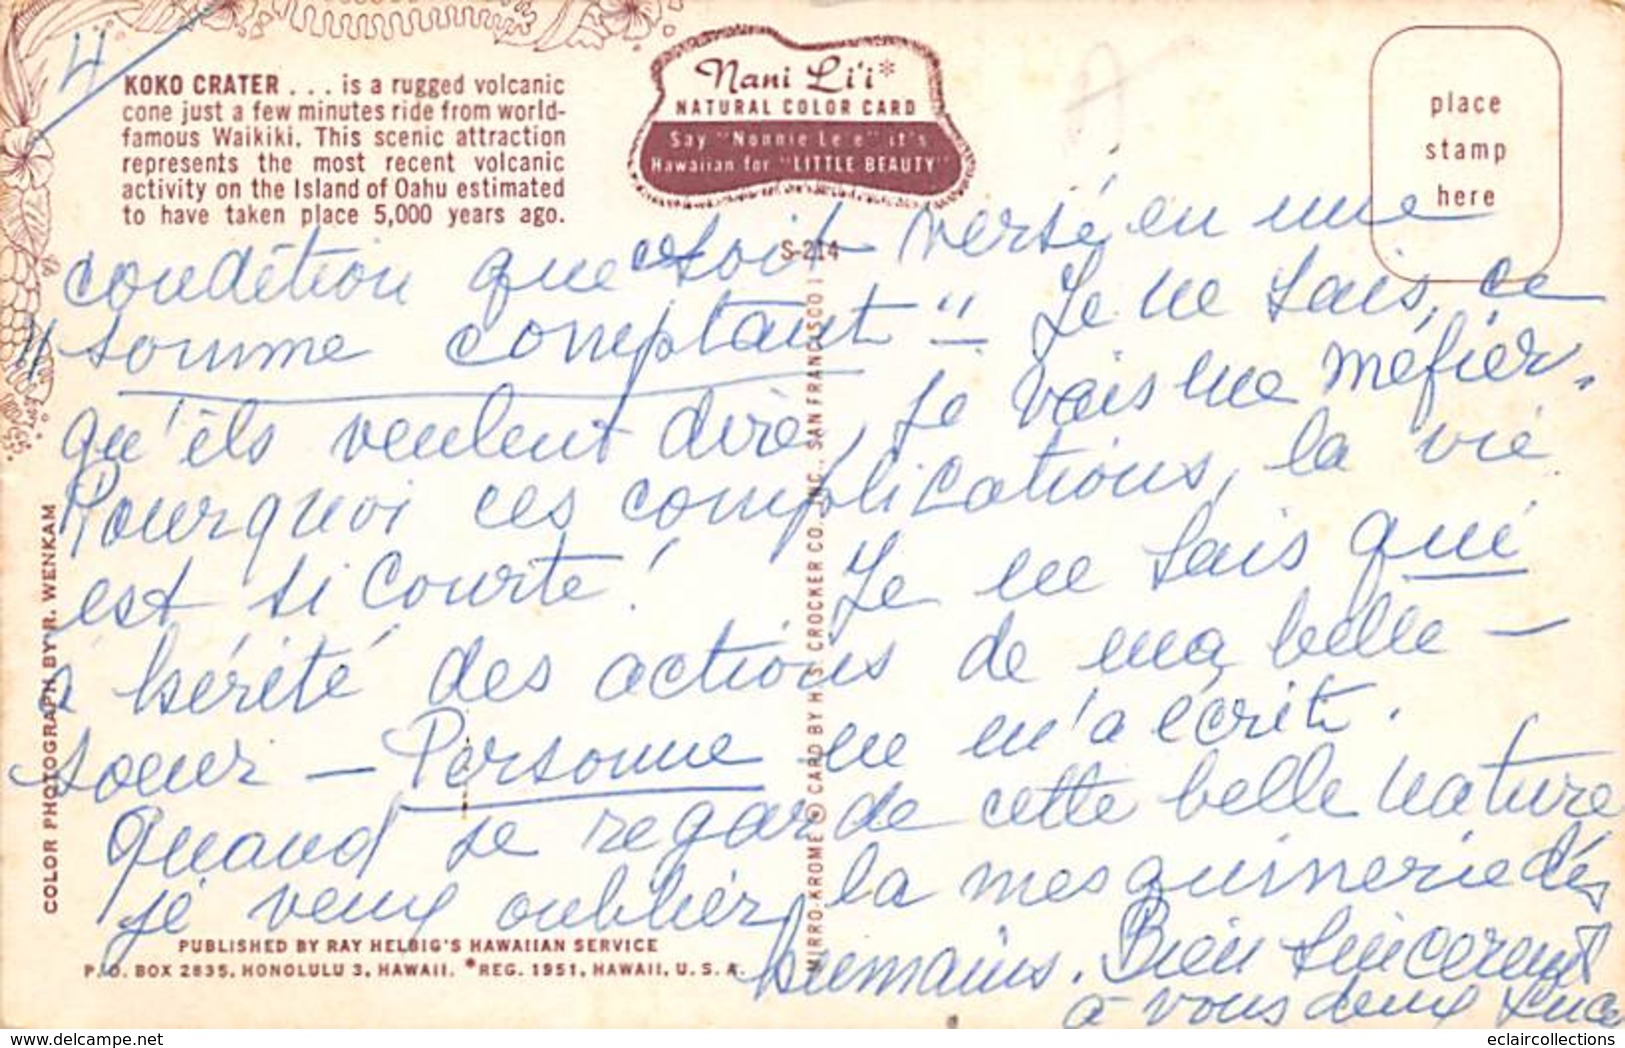 4
KOKO CRATER . . . is a rugged volcanic
cone just a few minutes ride from world-
famous Waikiki. This scenic attraction
represents the most recent volcanic
activity on the Island of Oahu estimated
to have taken place 5,000 years ago.
Nani Li'i*
NATURAL COLOR CARD
Say "Nonnie Le'e" it's
Hawaiian for "LITTLE BEAUTY"
place
stamp
here
S-214
condition que ce soit versé en une
"somme comptant" - Je ne sais, ce
qu'ils veulent dire, je vais me méfier.
Pourquoi ces complications, la vie
est si courte! Je ne sais qui
a hérité des actions de ma belle-
soeur - Personne ne m'a écrit.
Quand je regarde cette belle nature
je veux oublier la mesquinerie des
humains. Bien sincerement
à vous deux Luce
COLOR PHOTOGRAPH BY R. WENKAM
MIRRO-KROME ® CARD BY H. S. CROCKER CO., INC., SAN FRANCISCO 1
PUBLISHED BY RAY HELBIG'S HAWAIIAN SERVICE
P.O. BOX 2835, HONOLULU 3, HAWAII. *REG. 1951, HAWAII, U. S. A.
eclaircollections